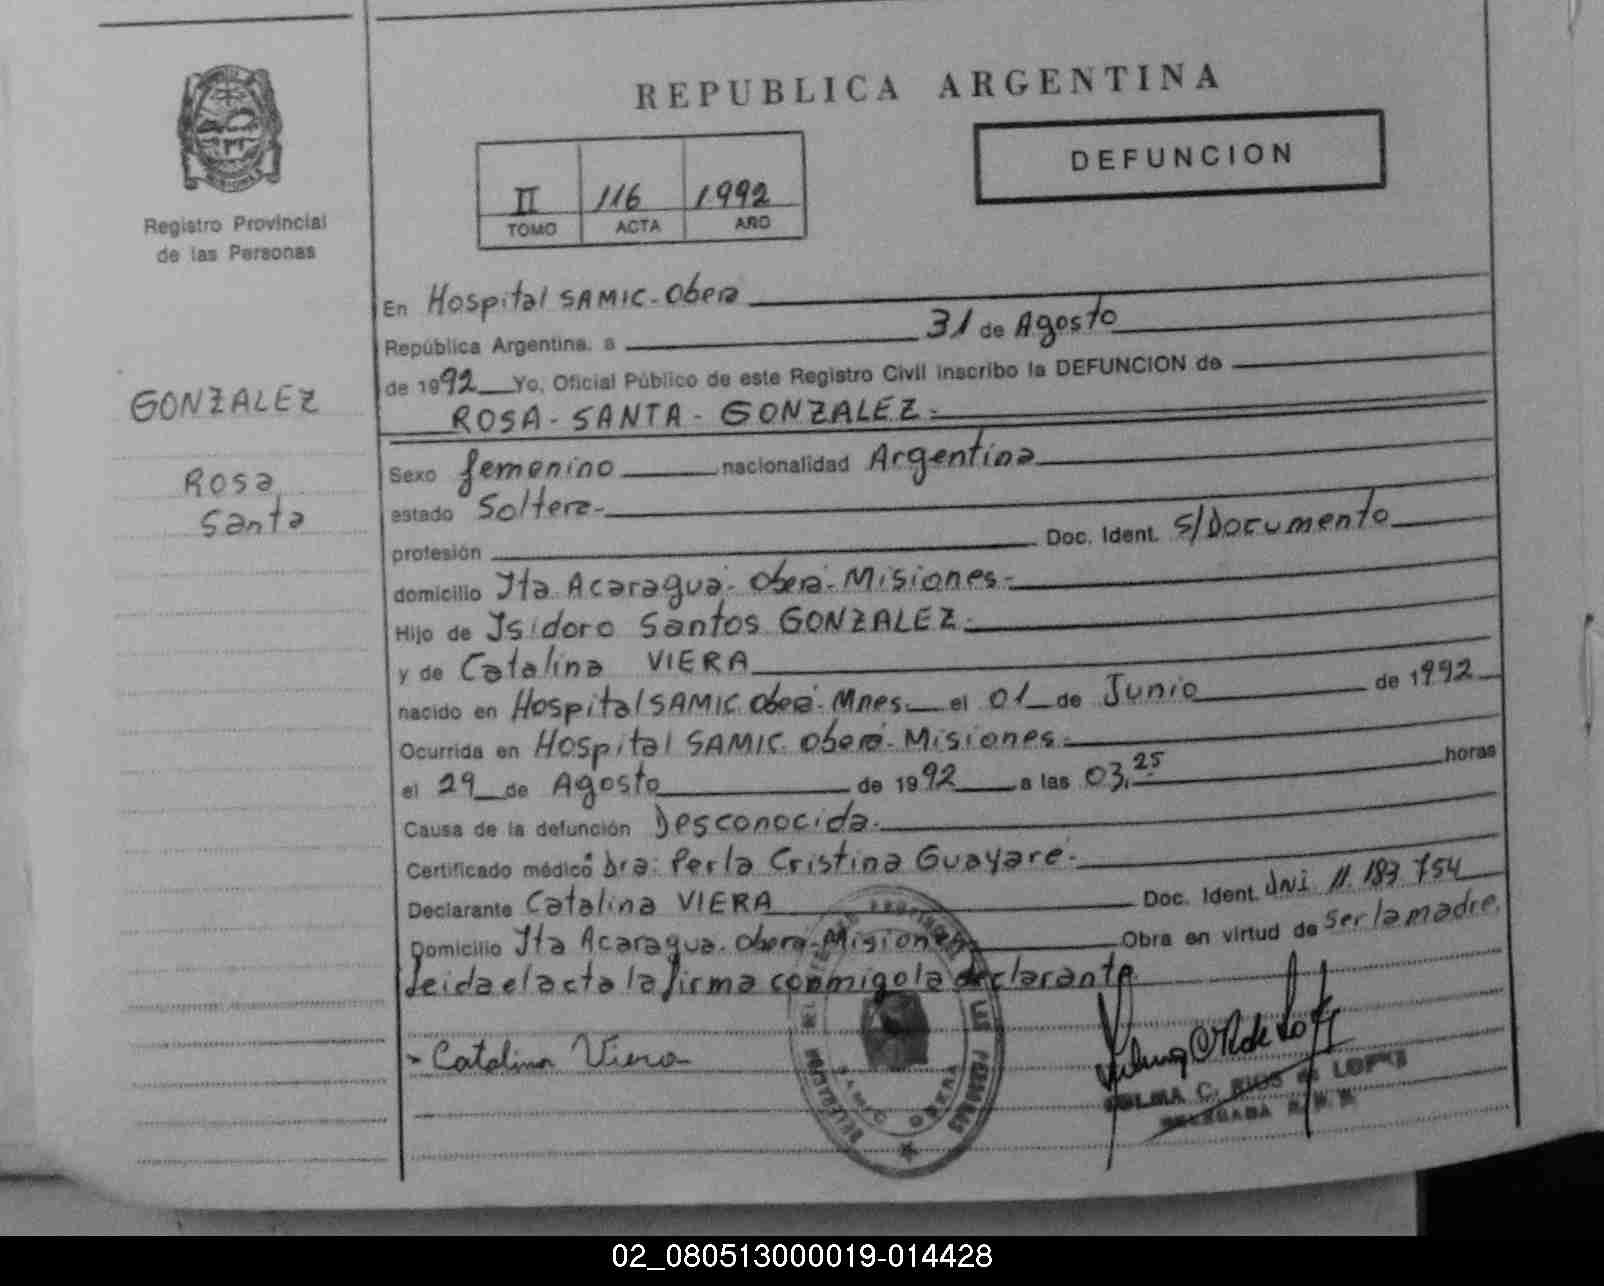 REPUBLICA ARGENTINA
DEFUNCION
II 116 1992
TOMO ACTA AÑO
Registro Provincial
de las Personas
GONZALEZ
Rosa
Santa
En Hospital SAMIC - Oberá
República Argentina, a 31 de Agosto
de 1992 Yo, Oficial Público de este Registro Civil inscribo la DEFUNCION de
ROSA - SANTA - GONZALEZ -
Sexo femenino nacionalidad Argentina
estado Soltera -
profesión Doc. Ident. S/Documento
domicilio Ita Acaragua - Oberá - Misiones -
Hijo de Isidoro Santos GONZALEZ -
y de Catalina VIERA
nacido en Hospital SAMIC Oberá - Mnes. el 01 de Junio de 1992
Ocurrida en Hospital SAMIC Oberá - Misiones -
el 29 de Agosto de 1992 a las 03,25 horas
Causa de la defunción Desconocida -
Certificado médico Dra: Perla Cristina Guayare -
Declarante Catalina VIERA Doc. Ident. DNI 11.183.754
Domicilio Ita Acaragua. Obera - Misiones Obra en virtud de ser la madre.
Leida el acta la firma conmigo la declarante
Catalina Viera
C. RIOS de LOPEZ
DELEGADA
02_080513000019-014428